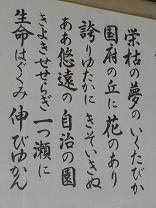 栄枯の夢のいくたびか
国府の丘に花のあり
誇りゆたかにきそいきぬ
ああ悠遠の自治の園
きよきせせらぎ一つ瀬に
生命はぐくみ伸びゆかん